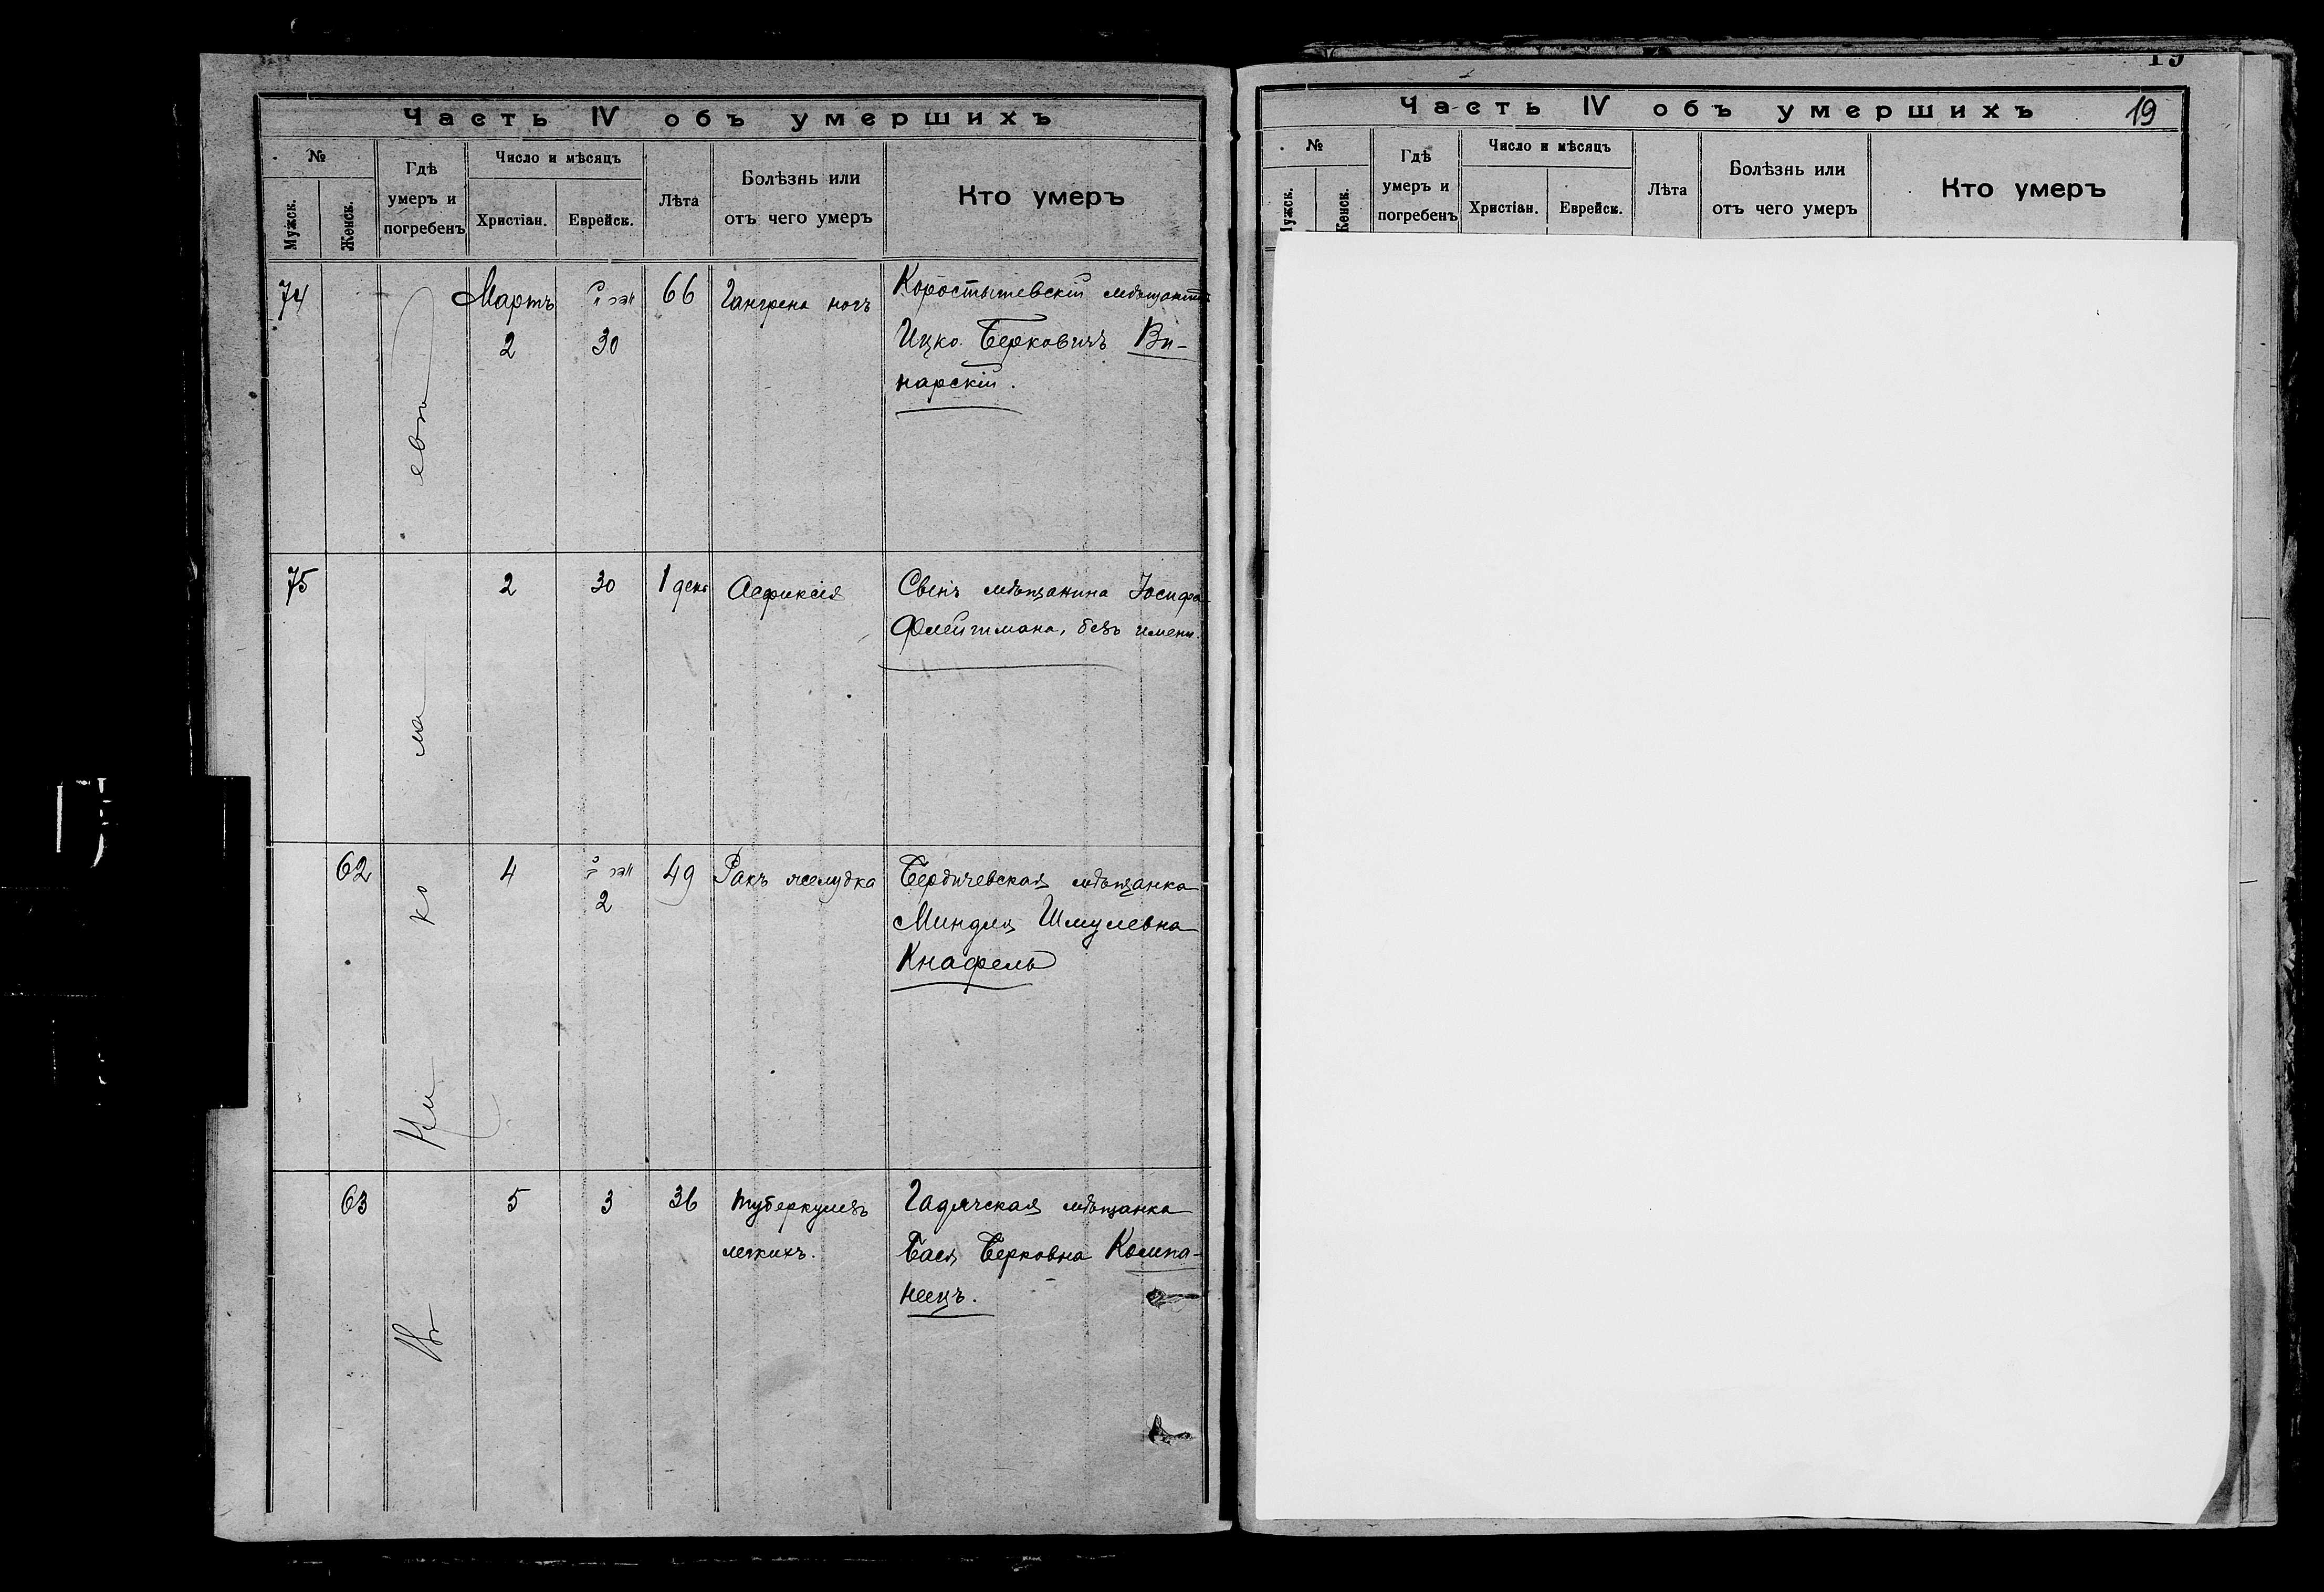 Часть IV объ умершихъ
№
Мужск.
Женск.
Гдѣ
умеръ и
погребенъ
Число и мѣсяцъ
Христіан.
Еврейск.
Лѣта
Болѣзнь или
отъ чего умеръ
Кто умеръ
74
Мартъ
2
30
66
Гангрена ногъ
Коростышевскій мѣщанинъ
Ицко Берковичъ Ви-
нарскій.
75
2
30
1 день
Асфиксія
Сынъ мѣщанина Іосифа
Флейтмана, безъ имени.
62
4
2
49
Ракъ желудка
Бердичевская мѣщанка
Миндля Шмулевна
Кнафель
63
5
3
36
туберкулезъ
легкихъ.
Гадячская мѣщанка
Бася Берковна Компа-
неецъ.
Въ
Ни
ко
ла
евѣ
19
Часть IV объ умершихъ
19
№
Мужск.
Женск.
Гдѣ
умеръ и
погребенъ
Число и мѣсяцъ
Христіан.
Еврейск.
Лѣта
Болѣзнь или
отъ чего умеръ
Кто умеръ